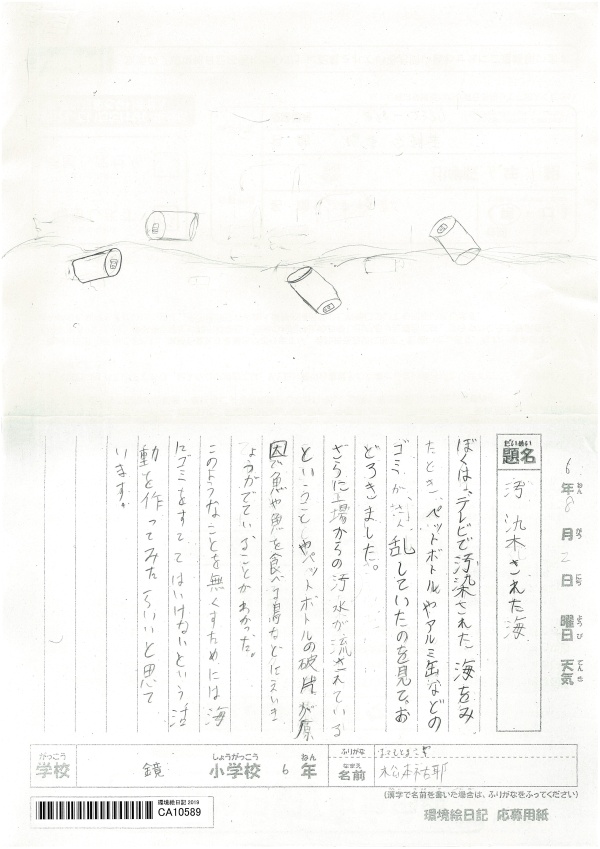 6年8月2日 曜日 天気
ねん がつ にち ようび てんき
題名
だいめい
汚染された海
ぼくは、テレビで汚染された海をみ
たとき、ペットボトルやアルミ缶などの
ゴミが、散乱していたのを見て、お
どろきました。
さらに工場からの汚水が流されている
ということやペットボトルの破片が原
因で魚や魚を食べる鳥などにえいき
ょうがでていることがわかった。
このようなことを無くすためには海
にゴミをすててはいけないという活
動を作ってみたらいいと思て
います。
がっこう しょうがっこう ねん
学校 鏡 小学校 6年
ふりがな まつもとゆうや
なまえ
名前 松本祐耶
(漢字で名前を書いた場合は、ふりがなをふってください)
環境絵日記2019
CA10589
環境絵日記 応募用紙